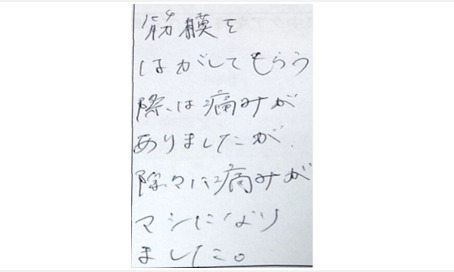 筋膜を
はがしてもらう
際は痛みが
ありましたが、
除々に痛みが
マシになり
ました。